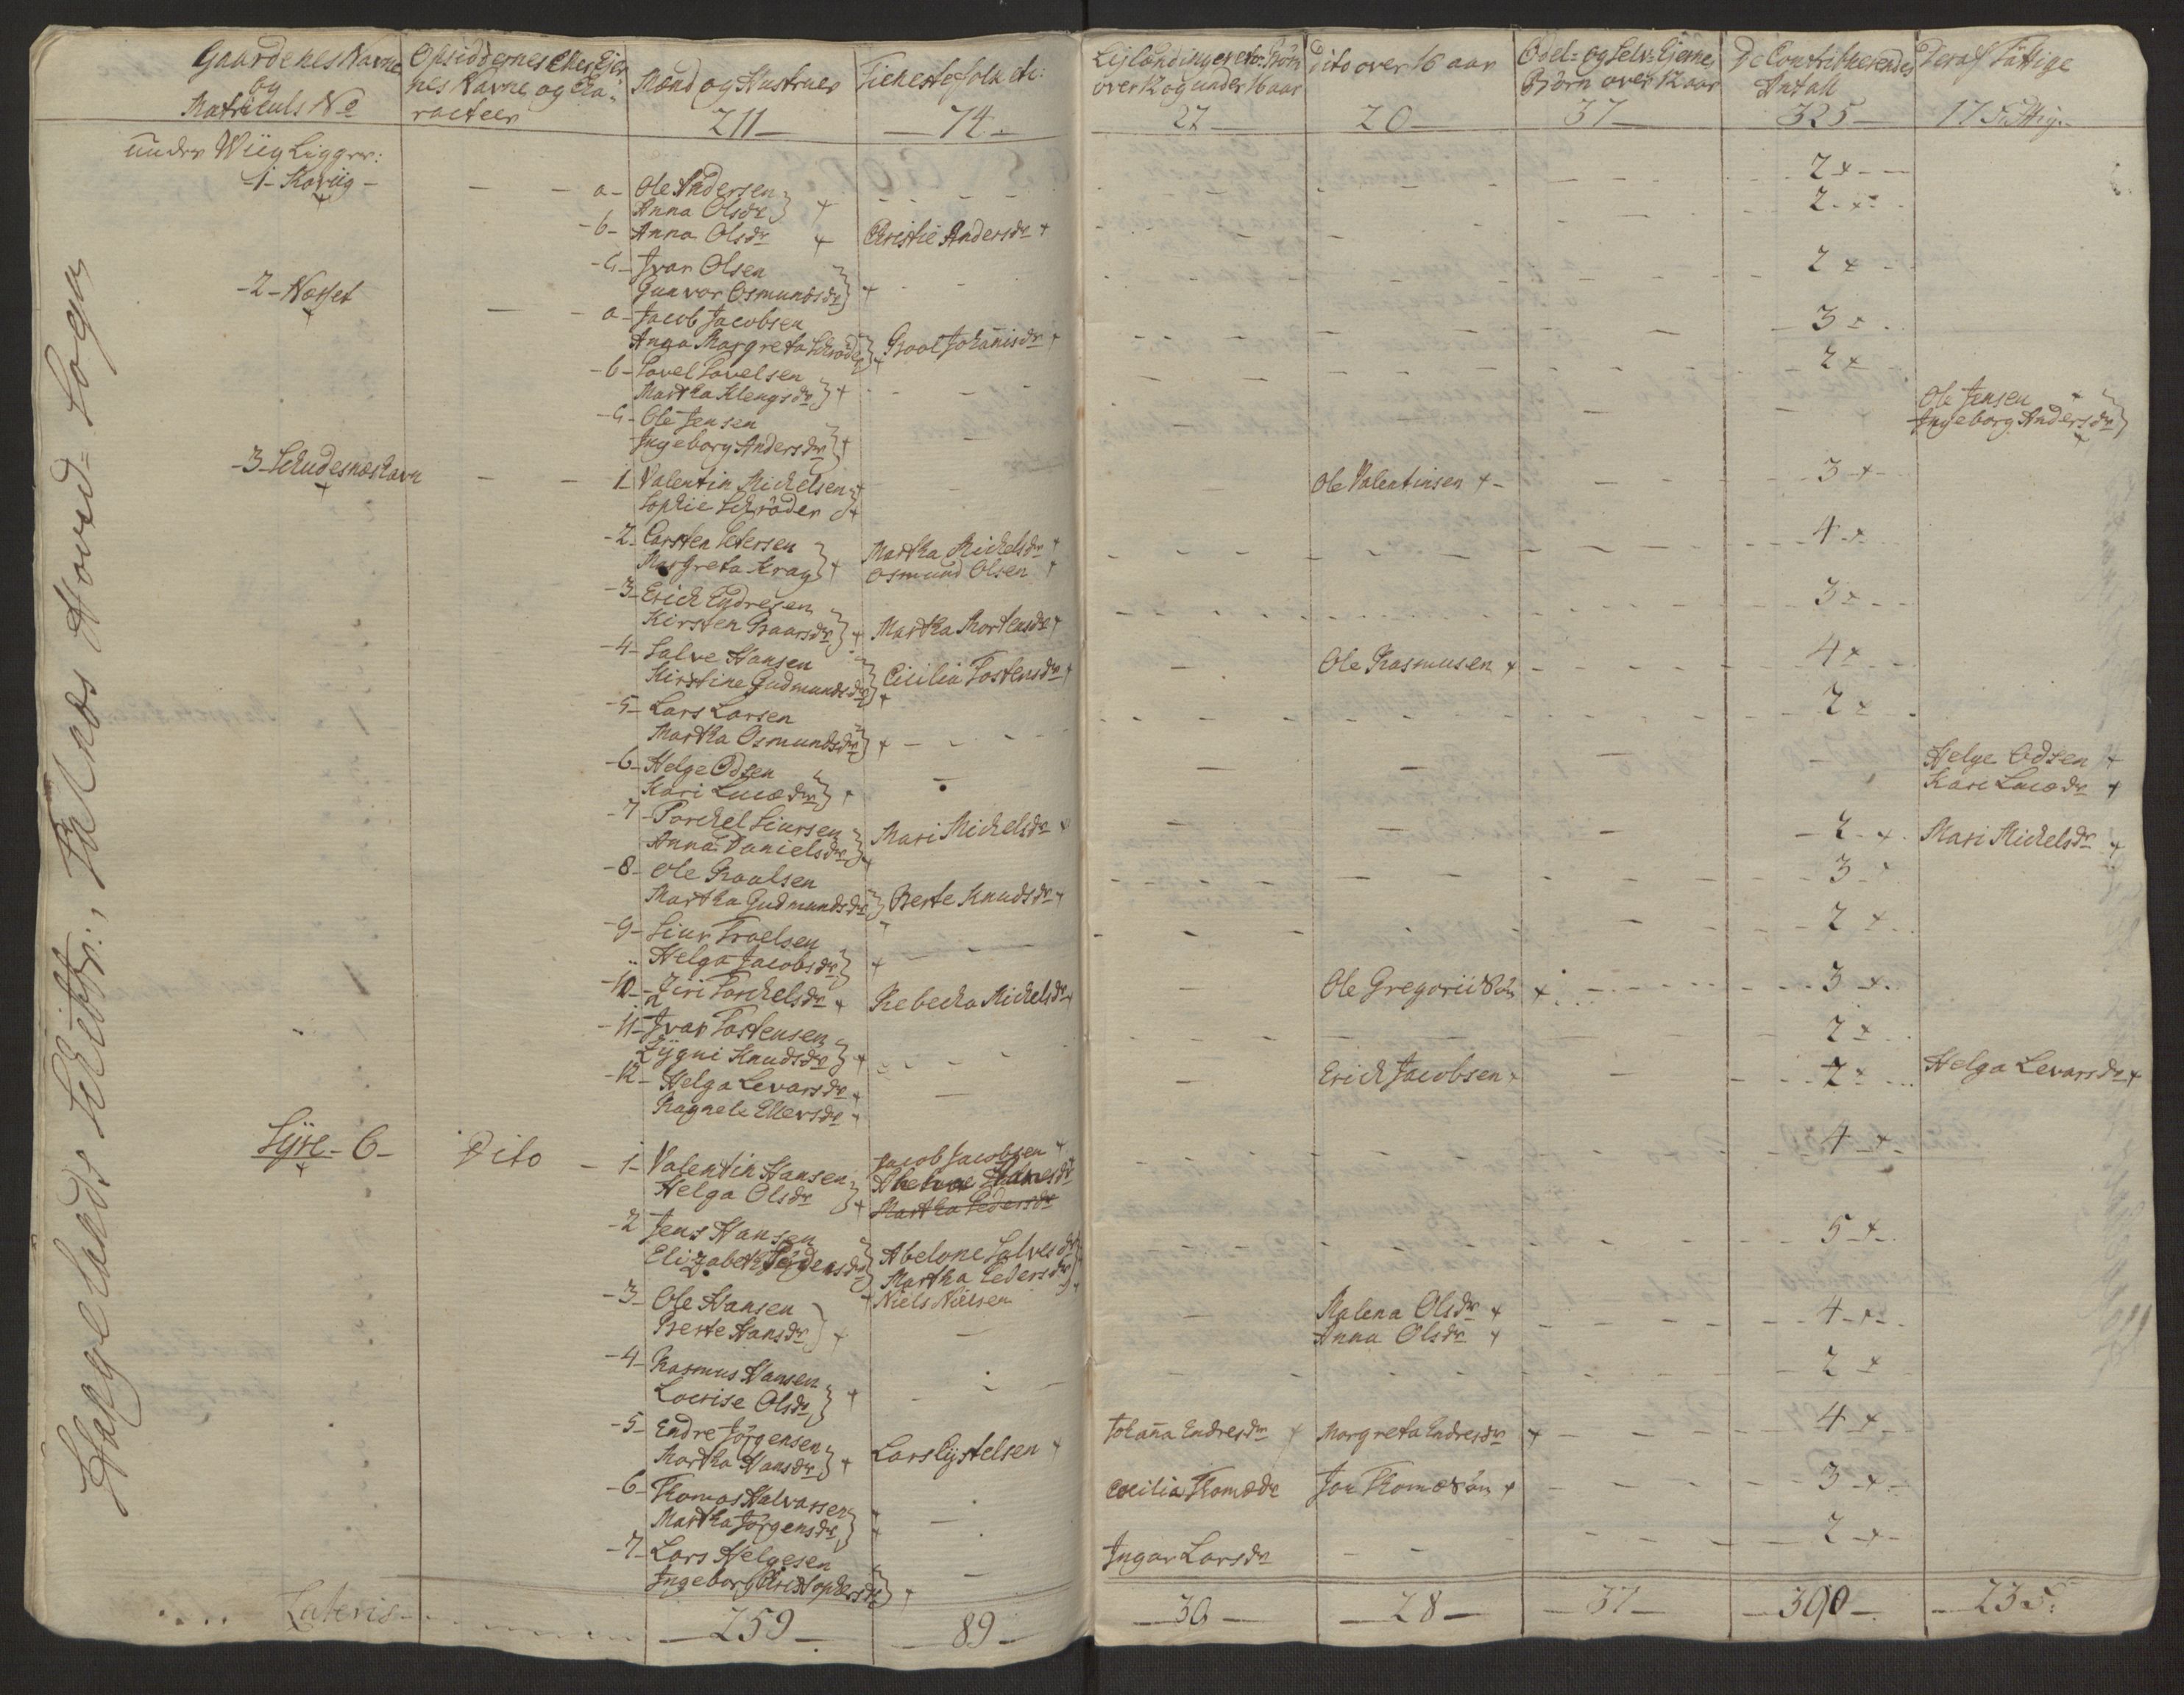 Gaardenes Navne og Matriculs No
Opsiddernes eller Ejernes Navne og Caracteer
Mænd og Hustruer
211
Tienestefolk etc:
74
Lejlændinger etc Børn over 12 og under 16 aar
27
Dito over 16 aar
20
Odel- og Selv-Ejernes Børn over 12 aar
37
De Contribuerendes Antall
325
Deraf Fattige
17 Fattige
under Wiig Ligger:
-1- Kaviig -
a- Ole Andersen
Anna Olsdr
2
-b- Anna Olsdr
Christie Andersdr
2
-c- Ivar Olsen
Gunvor Osmundsdr
2
-2- Næsset
a- Jacob Jacobsen
Anna Margreta Schröder
Boel Johannisdr
3
-b- Lavel Lavelsen
Martha Klengsdr
2
-c- Ole Jensen
Ingeborg Andersdr
Ole Jensen
Ingeborg Andersdr
-3- Schudesnæshavn
1- Valentin Michelsen
Sophie Schröder
Ole Valentinsen
3
-2- Carsten Petersen
Margreta Krag
Martha Michelsdr
Osmund Olsen
4
-3- Erich Endresen
Kirsten Baarsdr
Martha Mortensdr
3
-4- Salve Hansen
Kirstine Gudmundsdr
Cicilia Tostensdr
Ole Rasmusen
4
-5- Lars Larsen
Martha Osmundsdr
2
-6- Helge Odsen
Kari Lucædr
Helge Odsen
Kari Lucædr
-7- Torchel Siursen
Anna Danielsdr
Mari Michelsdr
2
Mari Michelsdr
-8- Ole Poulsen
Martha Gudmundsdr
Berte Knudsdr
3
-9- Siur Troelsen
Helga Jacobsdr
2
-10- Siri Torchelsdr
Rebecka Michelsdr
Ole Gregoriisøn
3
-11- Ivar Tostensen
Lygni Knudsdr
2
-12- Helga Levarsdr
Ragnele Ellevsdr
Erich Jacobsen
2
Helga Levarsdr
Syre - 6 -
Dito
1- Valentin Hansen
Helga Olsdr
Jacob Jacobsen
Martha Pedersdr
4
-2 Jens Hansen
Elizabeth Jørgensdr
Abelone Salvesdr
Martha Pedersdr
Niels Nielsen
5
-3- Ole Hansen
Berte Hansdr
Malena Olsdr
Anna Olsdr
4
-4- Rasmus Hansen
Lovrise Olsdr
2
-5- Endre Jörgensen
Martha Hansdr
Lars Eystelsen
Johanna Endresdr
Margreta Endresdr
4
-6- Thomas Halvorsen
Martha Jörgensdr
Cecilia Thomædr
Jon Thomæsøn
3
-7- Lars Helgesen
Ingeborg Christophersdr
Ingar Larsdr
2
Lateris
259
89
30
28
37
390
23 F: